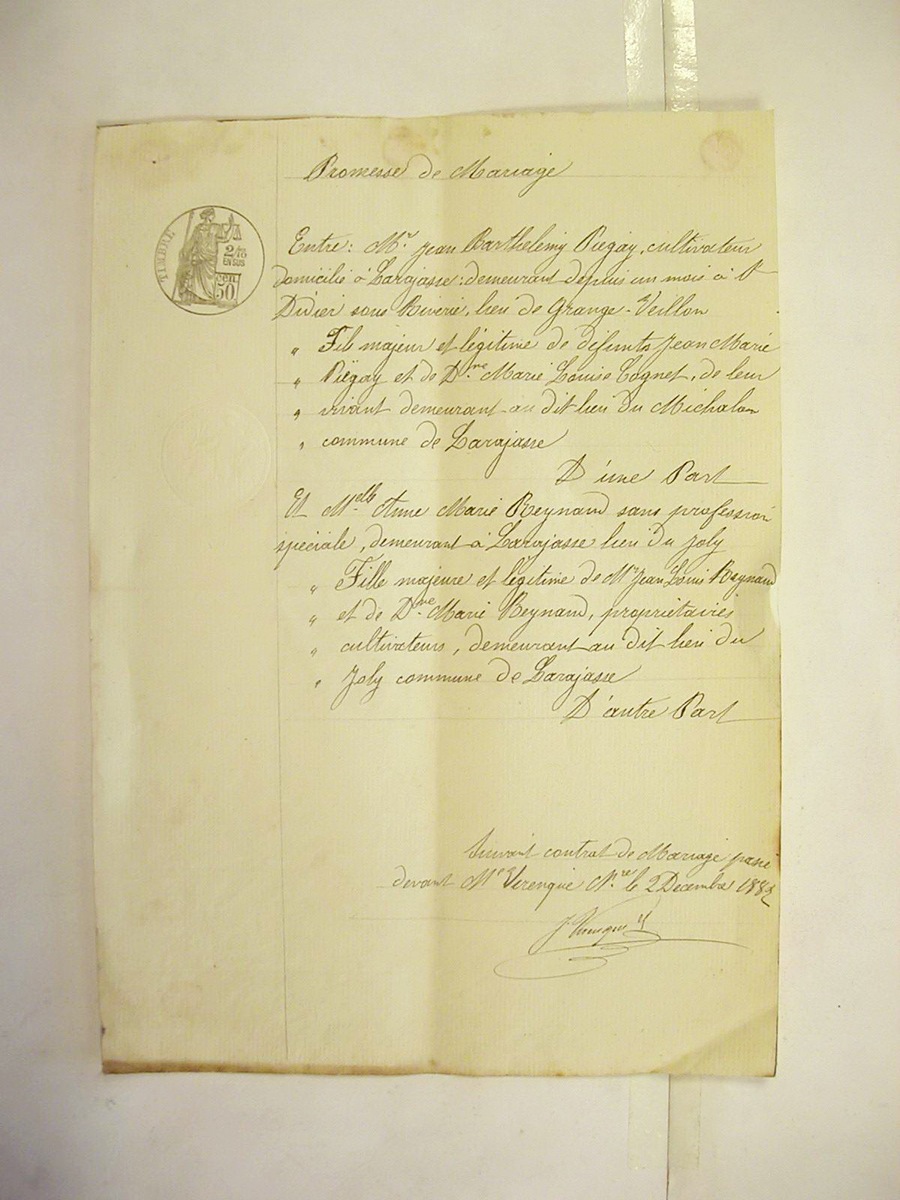 Promesse de Mariage
TIMBRE
2/10 des
EN SUS
50 CEN
Entre : Mr Jean Barthelemy Piégay, cultivateur
domicilié à Larajasse, demeurant depuis un mois à St
Didier sous Riverie, lieu de Grange-Veillon
„ Fils majeur et légitime de défunts Jean Marie
„ Piégay et de Dme Marie Louise Cognet, de leur
„ vivant demeurant au dit lieu du Michalon
„ commune de Larajasse
D'une Part
Et Melle Anne Marie Reynaud sans profession
spéciale, demeurant à Larajasse lieu du Joly
„ Fille majeure et légitime de Mr Jean Louis Reynaud
„ et de Dme Marie Reynaud, propriétaires
„ cultivateurs, demeurant au dit lieu du
„ Joly commune de Larajasse
D'autre Part
Suivant contrat de Mariage passé
devant Me Verenque Nre le 2 Décembre 1882